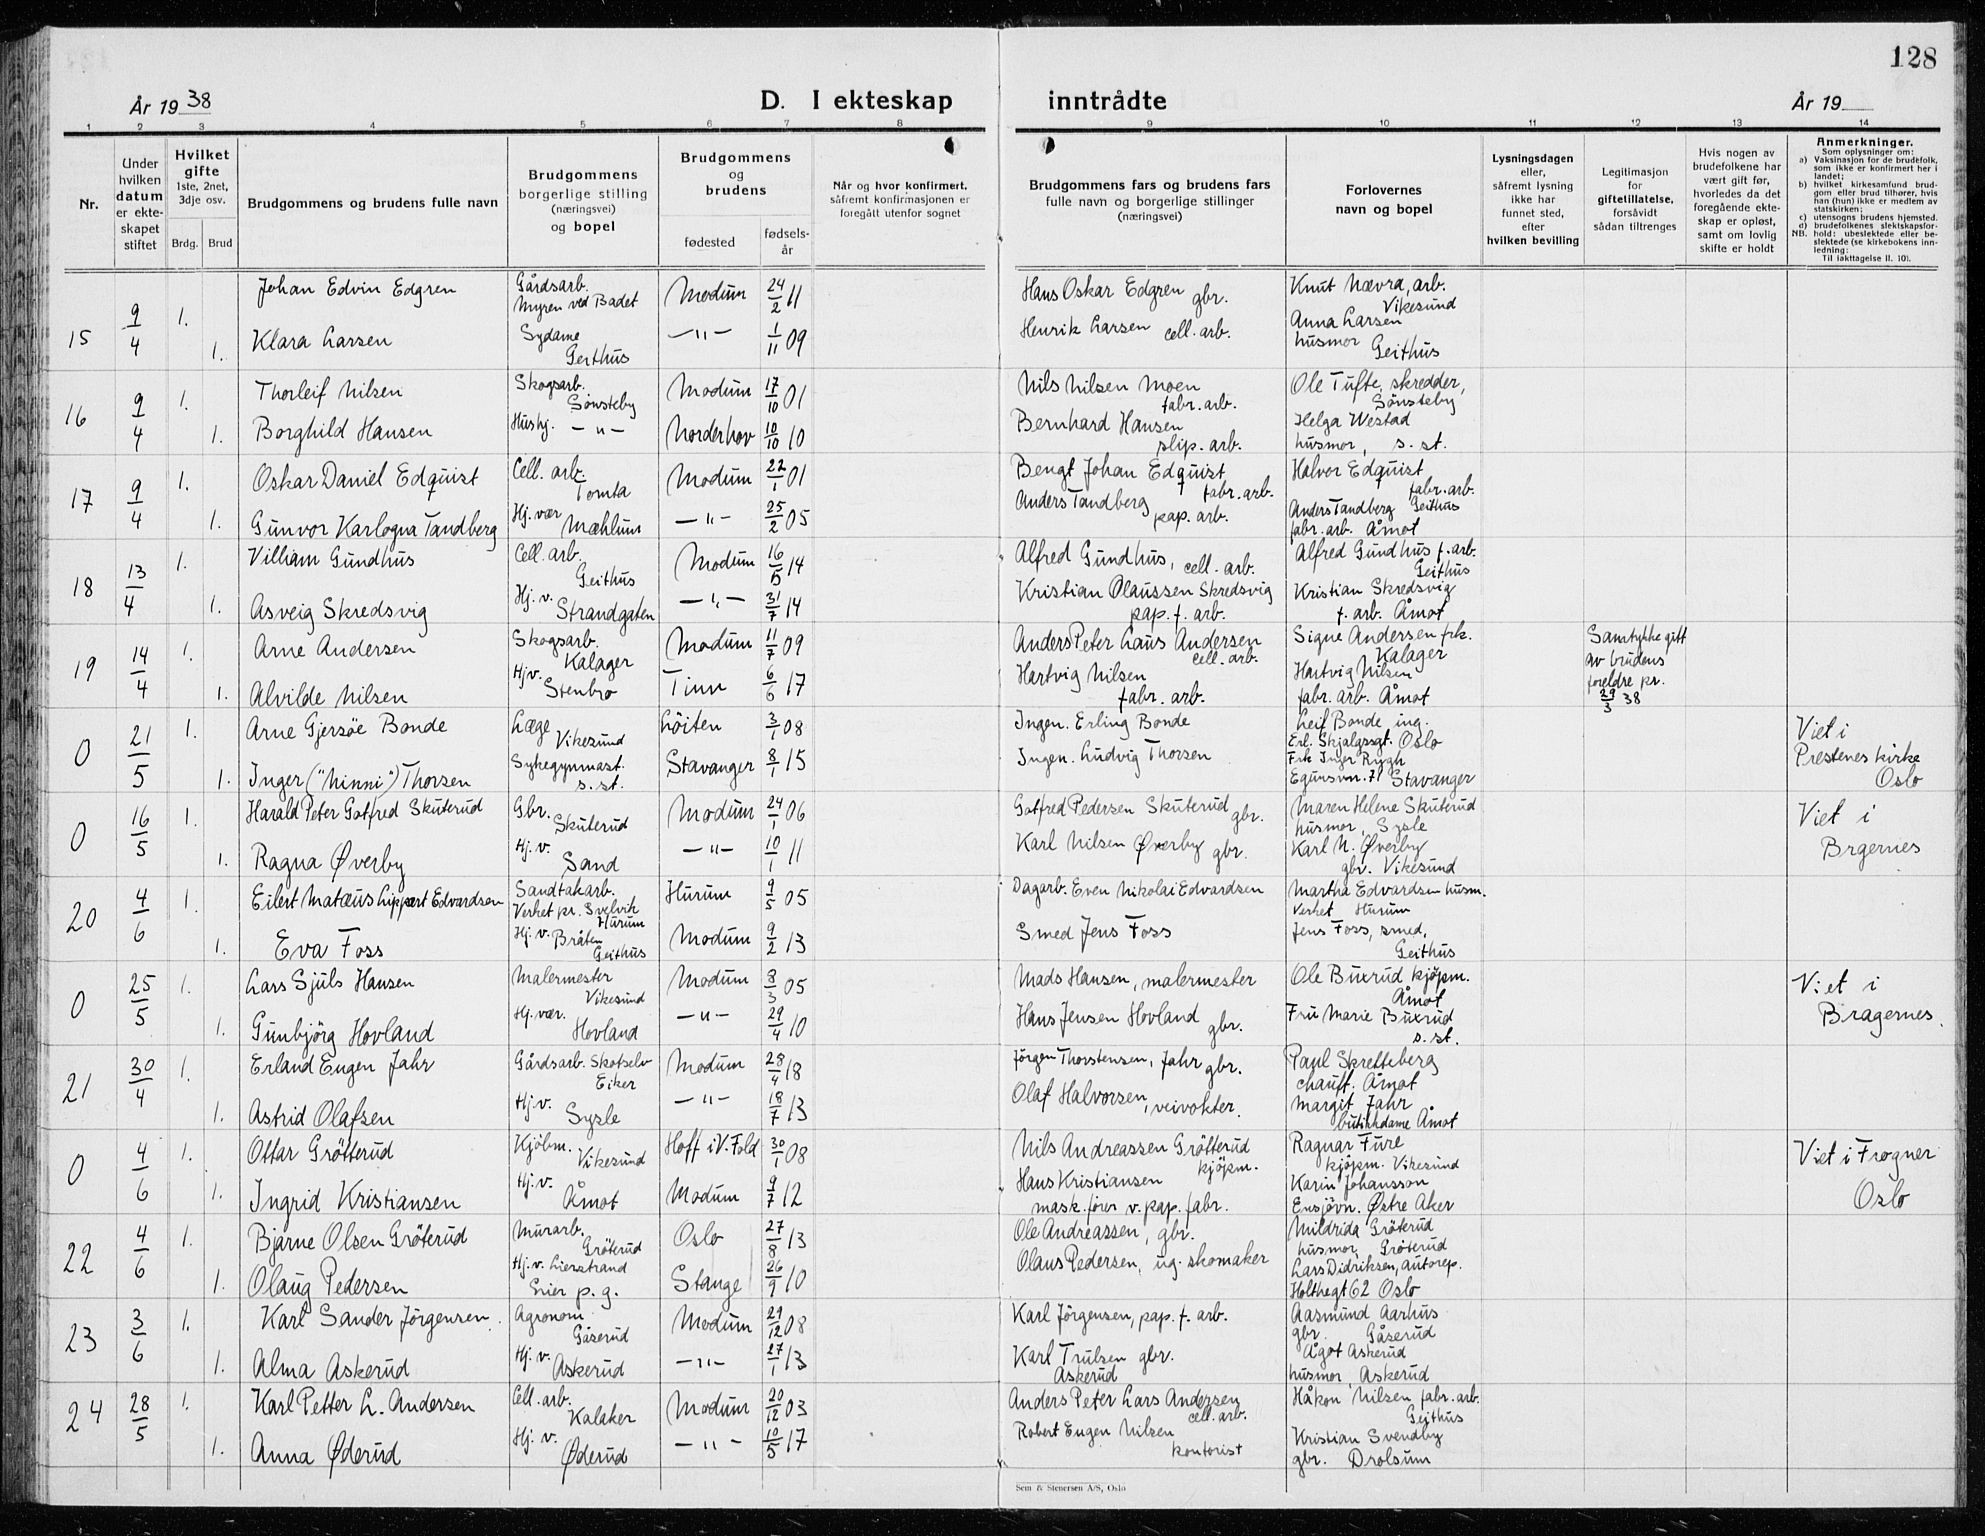 128
År 1938
D. I ekteskap inntrådte
År 19
1 2 3 4 5 6 7 8 9 10 11 12 13 14
Nr.
Under hvilken datum er ekteskapet stiftet
Hvilket gifte 1ste, 2net, 3dje osv.
Brdg. Brud
Brudgommens og brudens fulle navn
Brudgommens borgerlige stilling (næringsvei) og bopel
Brudgommens og brudens
fødested
fødselsår
Når og hvor konfirmert, såfremt konfirmasjonen er foregått utenfor sognet
Brudgommens fars og brudens fars fulle navn og borgerlige stillinger (næringsvei)
Forlovernes navn og bopel
Lysningsdagen eller, såfremt lysning ikke har funnet sted, efter hvilken bevilling
Legitimasjon for giftetillatelse, forsåvidt sådan tiltrenges
Hvis nogen av brudefolkene har vært gift før, hvorledes da det foregående ekteskap er opløst, samt om lovlig skifte er holdt
Anmerkninger.
Som oplysninger om:
a) Vaksinasjon for de brudefolk, som ikke er konfirmert her i landet;
b) hvilket kirkesamfund brudgom eller brud tilhører, hvis han (hun) ikke er medlem av statskirken;
c) utensogns brudens hjemsted.
d) brudefolkenes slektskapsforhold: ubeslektede eller beslektede (se kirkebokens innledning:
NB. Til iakttagelse II. 10).
15 9/4 1. Johan Edvin Edgren Gårdsarb. Myren ved Badet Modum 24/2 11 Hans Oskar Edgren gbr. Knut Nævra, arb. Vikesund
1. Klara Larsen Sydame Geithus —"— 1/11 09 Henrik Larsen cell. arb. Anna Larsen husmor Geithus
16 9/4 1. Thorleif Nilsen Skogsarb. Sønsteby Modum 17/10 01 Nils Nilsen Moen fabr. arb. Ole Tufte, skredder, Sønsteby
1. Borghild Hansen Hushj. —"— Norderhov 10/10 10 Bernhard Hansen slip. arb. Helga Westad husmor, s. st.
17 9/4 1. Oskar Daniel Edquist Cell. arb. Tomta Modum 22/1 01 Bengt Johan Edquist fabr. arb. Halvor Edquist fabr. arb. Geithus
1. Gunvor Karlogna Tandberg Hj. vær Mæhlum —"— 25/2 05 Anders Tandberg pap. arb. Anders Tandberg fabr. arb. Åmot
18 13/4 1. Villiam Gundhus Cell. arb. Geithus Modum 14 Alfred Gundhus, cell. arb. Alfred Gundhus f. arb. Geithus
1. Asveig Skredsvig Hj. v. Strandgaten —"— 31/7 14 Kristian Olaussen Skredsvig pap. f. arb. Kristian Skredsvig f. arb. Åmot
19 14/4 1. Arne Andersen Skogsarb. Kalager Modum 11/7 09 Anders Peter Laus Andersen cell. arb. Signe Andersen frk. Kalager Samtykke gitt av brudens foreldre pr. 29/3 38
1. Alvilde Nilsen Hjv. Stenbro Tinn 6/6 17 Hartvig Nilsen fabr. arb. Hartvig Nilsen fabr. arb. Åmot
0 21/5 1. Arne Gjersøe Bonde Læge Vikesund Löiten 3/1 08 Ingen. Erling Bonde Leif Bonde, ing. Erl. Skjalgssgt. Oslo Viet i Prestenes kirke Oslo
1. Inger ("Ninni") Thorsen Sykegymnast. s. st. Stavanger 8/1 15 Ingen. Ludvig Thorsen Frk Inger Rygh Egunsvn. 71 Stavanger
0 16/5 1. Harald Peter Gotfred Skuterud Gbr. Skuterud Modum 24/1 06 Gotfred Pedersen Skuterud gbr. Maren Helene Skuterud husmor, Sysle Viet i Brgernes
1. Ragna Øverby Hj. v. Sand —"— 10/1 11 Karl Nilsen Øverby gbr. Karl N. Øverby gbr. Vikesund
20 4/6 1. Eilert Matæus Lippert Edvardsen Sandtakarb. Verket pr. Svelvik Hurum Hurum 9/5 05 Dagarb. Even Nikolai Edvardsen Martha Edvardsen husm. Verket Hurum
1. Eva Foss Hj. v. Bråten Geithus Modum 9/2 13 Smed Jens Foss Jens Foss, smed, Geithus
0 25/5 1. Lars Sjuls Hansen Malermester Vikesund Modum 8/3 05 Mads Hansen, malermester Ole Buxrud kjøpm. Åmot Viet i Bragernes.
1. Gunbjörg Hovland Hj. vær. Hovland —"— 29/4 10 Hans Jensen Hovland gbr. Fru Marie Buxrud s. st.
21 30/4 1. Erland Eugen Jahr Gårdsarb. Skotselv Eiker Modum 28/4 18 Jörgen Thorstensen, Jahr gbr. Paul Skretteberg chauff. Åmot
1. Astrid Olafsen Hj. v. Sysle —"— 18/7 13 Olaf Halvorsen, veivokter. Margit Jahr butikkdame Åmot
0 4/6 1. Ottar Grötterud Kjöbm. Vikesund Hoff i V. Fold 30/1 08 Nils Andreassen Grötterud kjöpm. Ragnar Fure kjöpm. Vikesund Viet i Frogner Oslo
1. Ingrid Kristiansen Hj. v. Åmot Modum 9/7 12 Hans Kristiansen mask. fører v. pap. fabr. Karin Johansson Ensjövn. Østre Aker
22 4/6 1. Bjarne Olsen Gröterud Murarb. Gröterud Oslo 27/8 13 Ole Andreassen, gbr. Mildrida Gröterud husmor, Gröterud
1. Olaug Pedersen Hj. v. Lierstrand Lier p. g. Stange 26/9 10 Olaus Pedersen, ug. skomaker Lars Didriksen, autorep. Holthegt 62 Oslo
23 3/6 1. Karl Sander Jörgensen. Agronom Gåserud Modum 29/12 08 Karl Jörgensen, pap. f. arb. Aasmund Aarhus gbr. Gåserud
1. Alma Askerud Hj. v. Askerud —"— 27/1 13 Karl Trulsen gbr. Askerud Ågot Askerud husmor, Askerud
24 28/5 1. Karl Petter L. Andersen Cell. arb. Kalaker Modum 20/12 03 Anders Peter Lars Andersen cell. arb. Håkon Nilsen fabr. arb. Geithus
1. Anna Øderud Hj. v. Øderud —"— 10/5 17 Robert Eugen Nilsen kontorist Kristian Svendby gbr. Drolsum
Sem & Stenersen A/S, Oslo